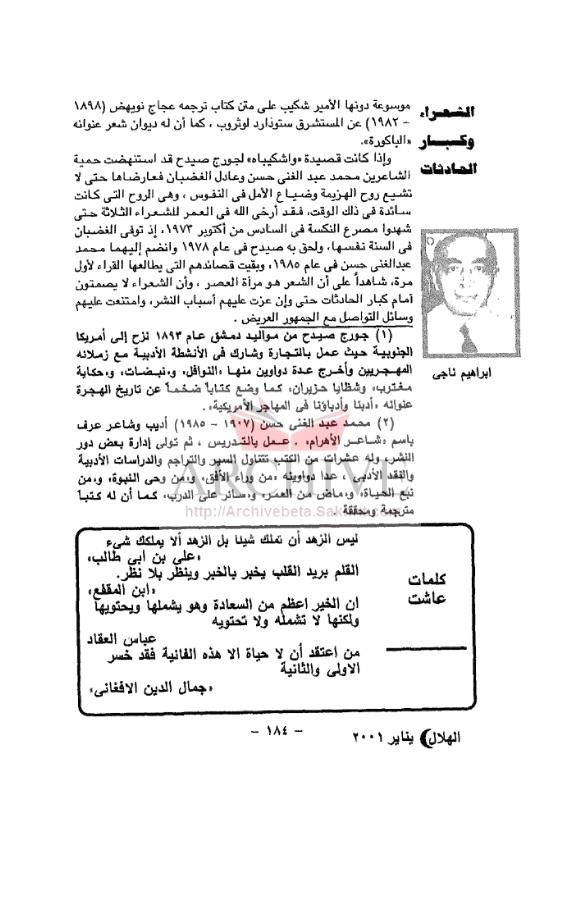 الشعراء
وكبار
الحادثات
موسوعة دونها الأمير شكيب على متن كتاب ترجمه عجاج نويهض (١٨٩٨
- ١٩٨٢) عن المستشرق ستودارد لوثروب ، كما أن له ديوان شعر عنوانه
«الباكورة».
وإذا كانت قصيدة «واشكيباه» لجورج صيدح قد استنهضت حمية
الشاعرين محمد عبد الغنى حسن وعادل الغضبان فعارضاها حتى لا
تشيع روح الهزيمة وضياع الأمل فى النفوس ، وهى الروح التى كانت
سائدة فى ذلك الوقت، فقد أرخى الله فى العمر للشعراء الثلاثة حتى
شهدوا مصرع النكسة فى السادس من أكتوبر ١٩٧٣، إذ توفى الغضبان
فى السنة نفسها، ولحق به صيدح فى عام ١٩٧٨ وانضم إليهما محمد
عبدالغنى حسن فى عام ١٩٨٥، وبقيت قصائدهم التى يطالعها القراء لأول
مرة، شاهداً على أن الشعر هو مرآة العصر ، وأن الشعراء لا يصمتون
أمام كبار الحادثات حتى وإن عزت عليهم أسباب النشر، وامتنعت عليهم
وسائل التواصل مع الجمهور العريض .
ابراهيم ناجى
(١) جورج صيدح من مواليد دمشق عام ١٨٩٣ نزح إلى أمريكا
الجنوبية حيث عمل بالتجارة وشارك فى الأنشطة الأدبية مع زملائه
المهجريين وأخرج عدة دواوين منها «النوافل»، و«نبضات»، و«حكاية
مغترب»، و«شظايا حزيران»، كما وضع كتاباً ضخماً عن تاريخ الهجرة
عنوانه «أدبنا وأدباؤنا فى المهاجر الأمريكية».
(٢) محمد عبد الغنى حسن (١٩٠٧ - ١٩٨٥) أديب وشاعر عرف
باسم «شاعر الأهرام» . عمل بالتدريس ، ثم تولى إدارة بعض دور
النشر، وله عشرات من الكتب تتناول السير والتراجم والدراسات الأدبية
والنقد الأدبى ، عدا دواوينه «من وراء الأفق»، و«من وحى النبوة»، و«من
نبع الحياة»، و«ماض من العمر»، و«سائر على الدرب»، كما أن له كتباً
مترجمة ومحققة .
ARCHIVE
http://Archivebeta.Sak
كلمات
عاشت
ليس الزهد أن تملك شيئا بل الزهد ألا يملكك شىء
«على بن ابى طالب»
القلم بريد القلب يخبر بالخبر وينظر بلا نظر.
«ابن المقفع»
ان الخير اعظم من السعادة وهو يشملها ويحتويها
ولكنها لا تشمله ولا تحتويه
عباس العقاد
من اعتقد أن لا حياة الا هذه الفانية فقد خسر
الاولى والثانية
«جمال الدين الافغانى»
الهلال يناير ٢٠٠١
- ١٨٤ -